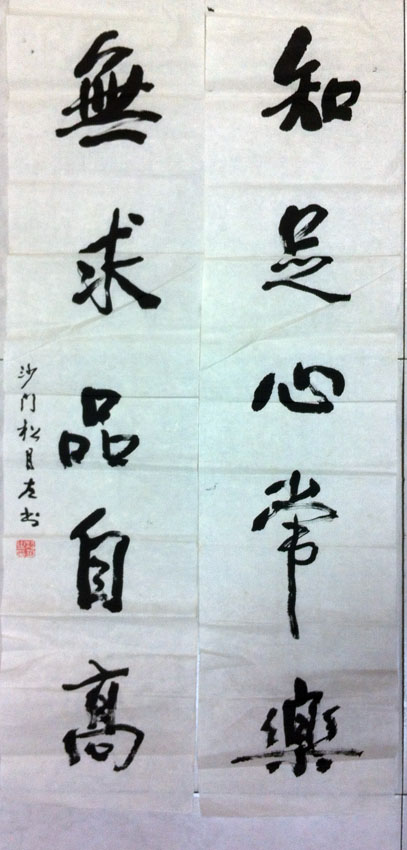 知足心常樂
無求品自高
沙门松月左书